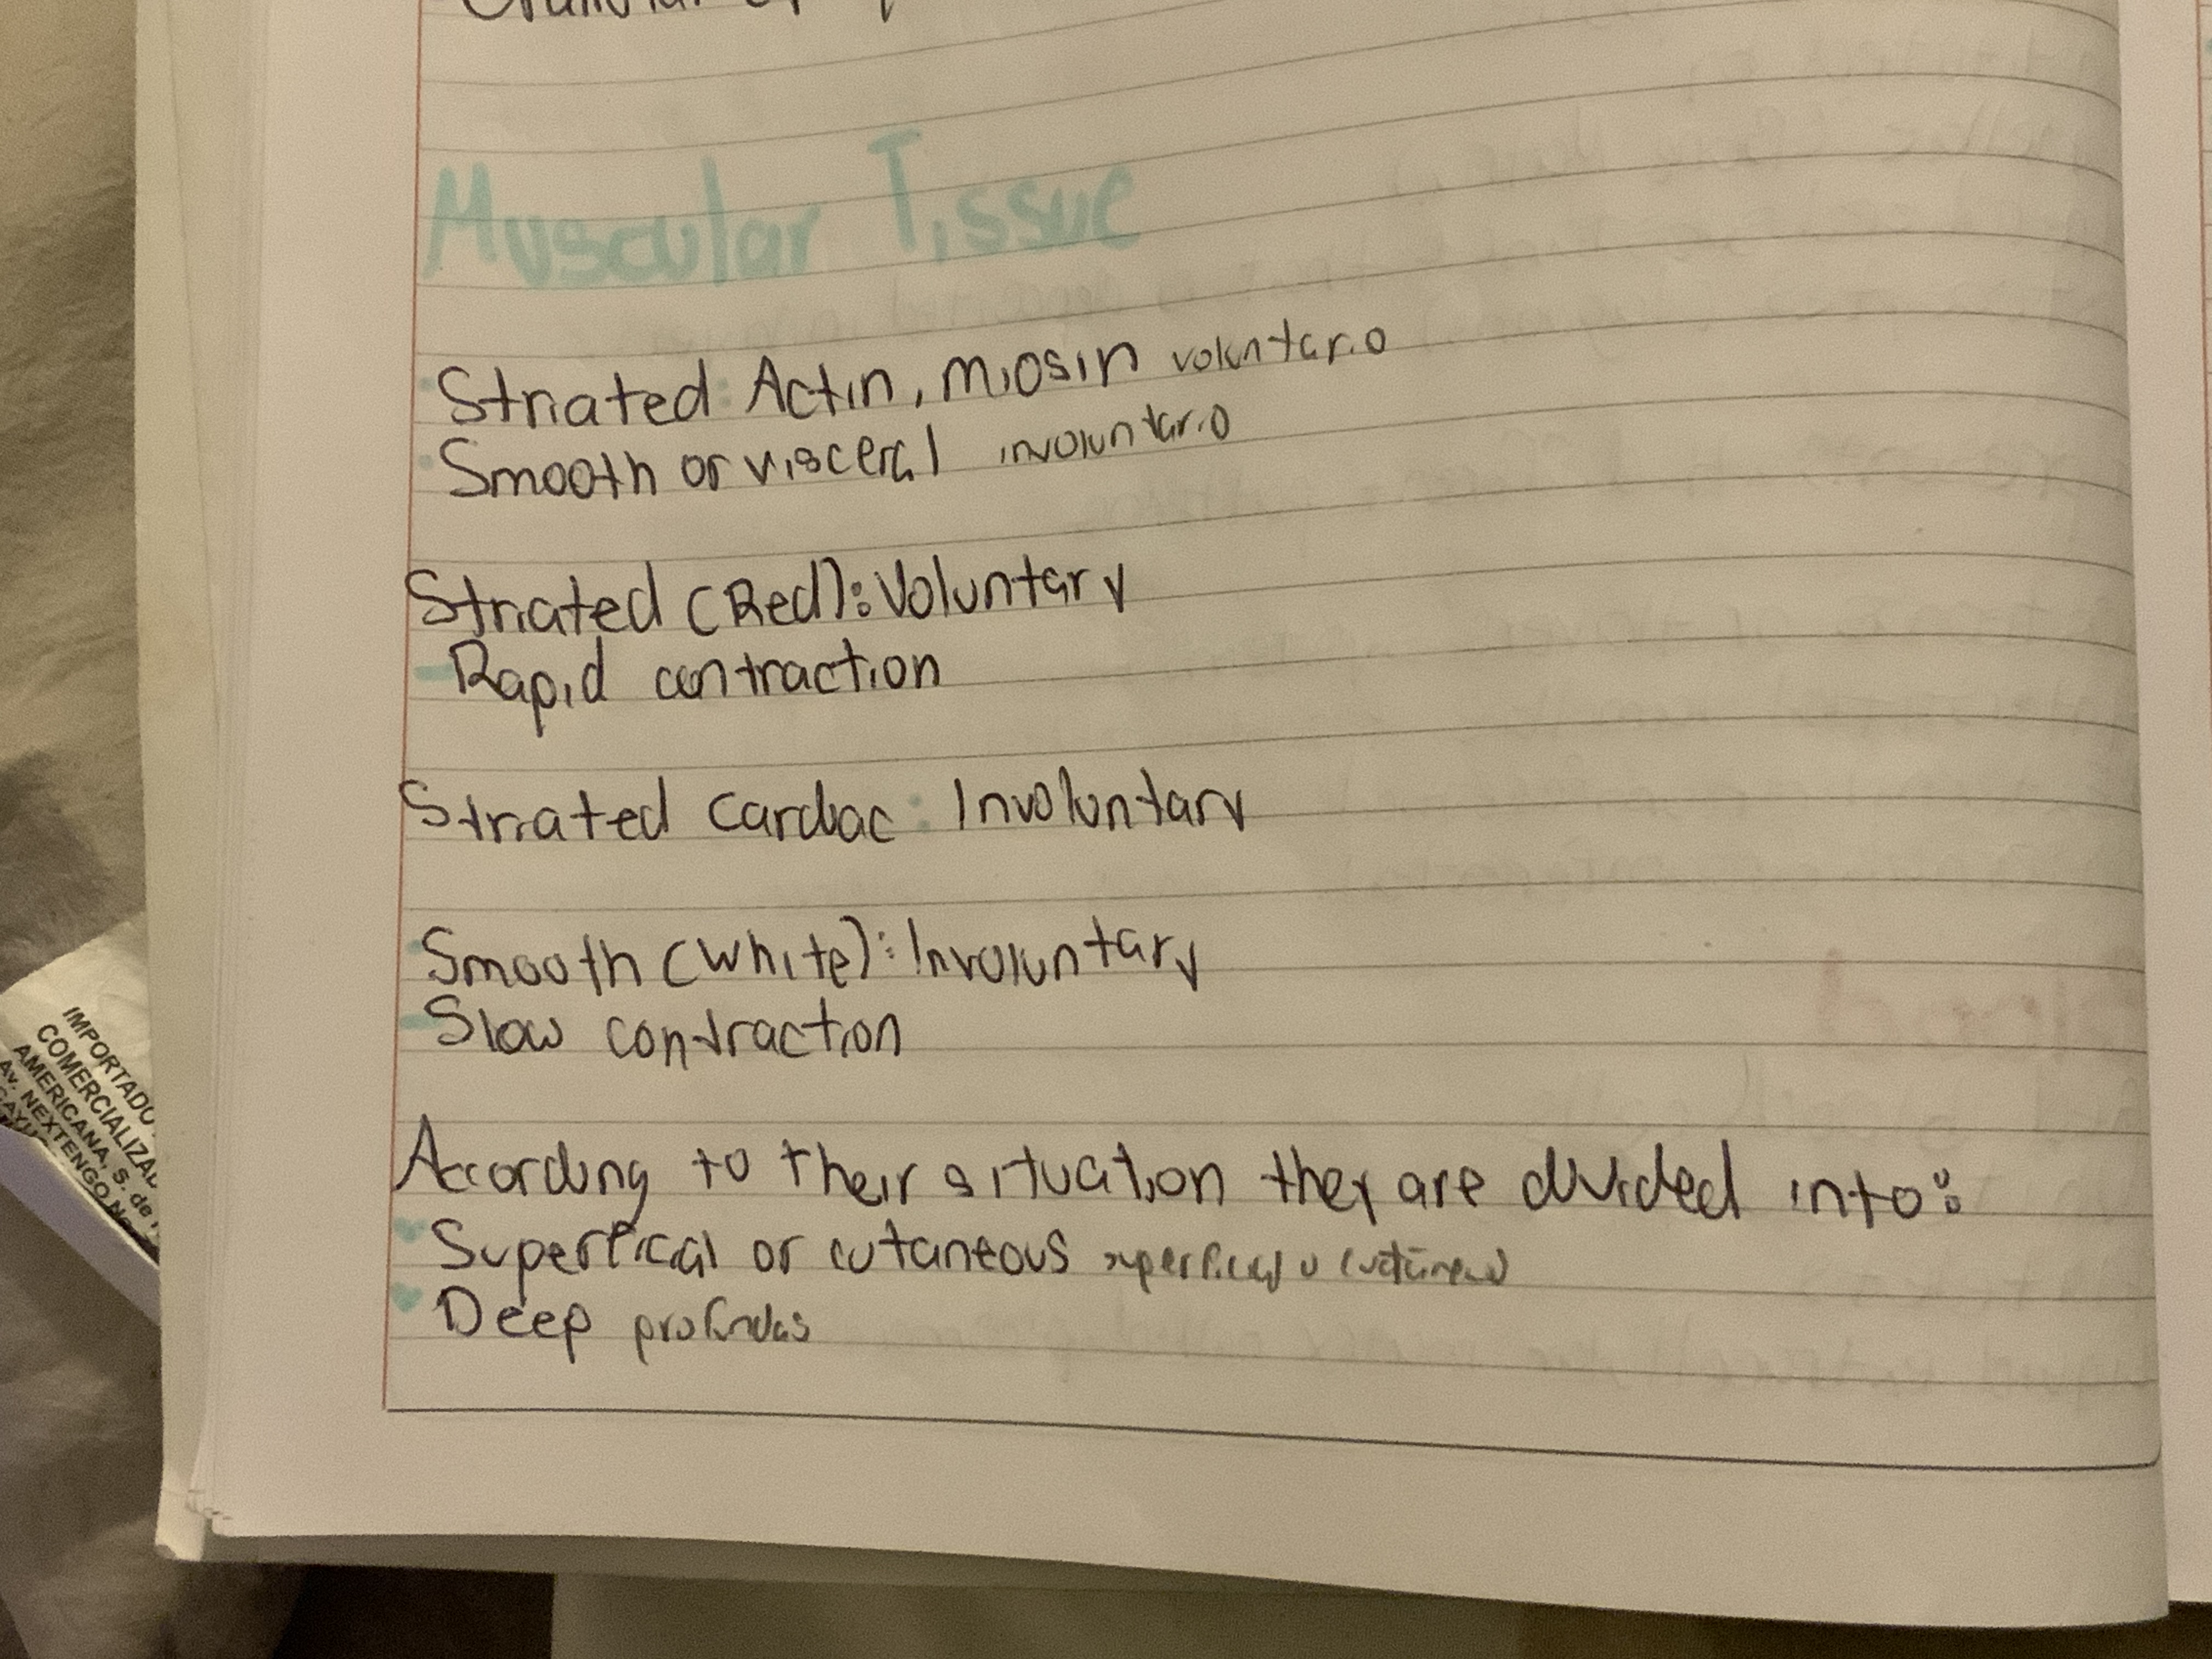 Muscular Tissue
Striated: Actin, miosin voluntario
Smooth or visceral involuntario
Striated (Red): Voluntary
- Rapid contraction
Striated cardiac: Involuntary
Smooth (White): Involuntary
- Slow contraction
According to their situation they are divided into:
Superficial or cutaneous superficial o cutáneas
Deep profundas
IMPORTADO
COMERCIALIZAD
AMERICANA, S. de
Av. NEXTENGO No